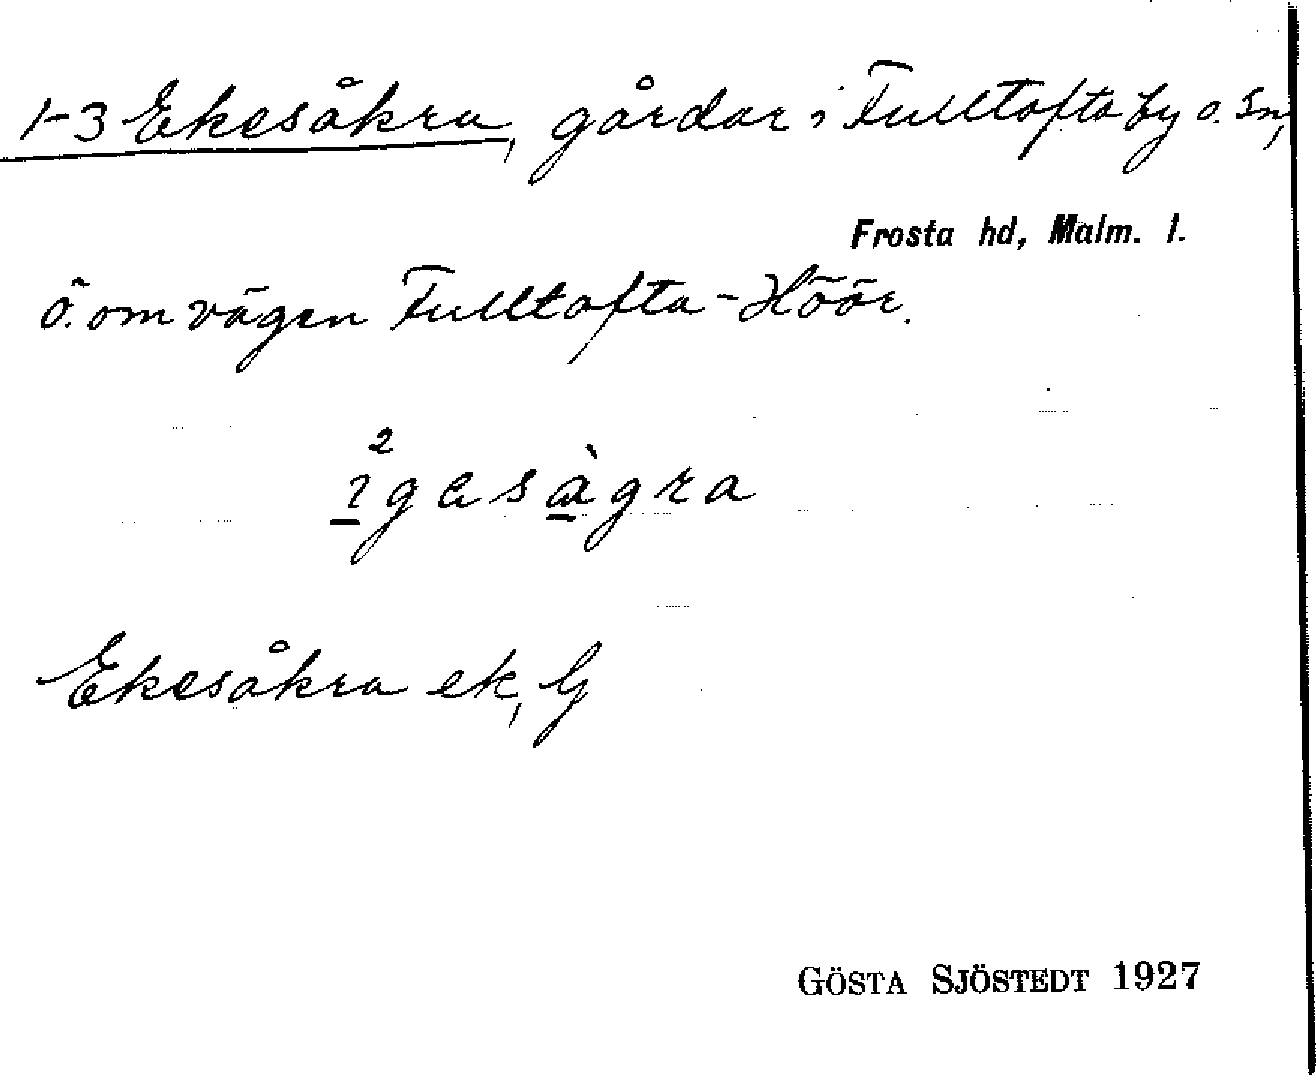 1-3 Ekesåkra, gårdar i Fulltofta by o. sn,
Frosta hd, Malm. l.
Ö. om vägen Fulltofta-Höör.
Ekesåkra ek, G
GÖSTA SJÖSTEDT 1927